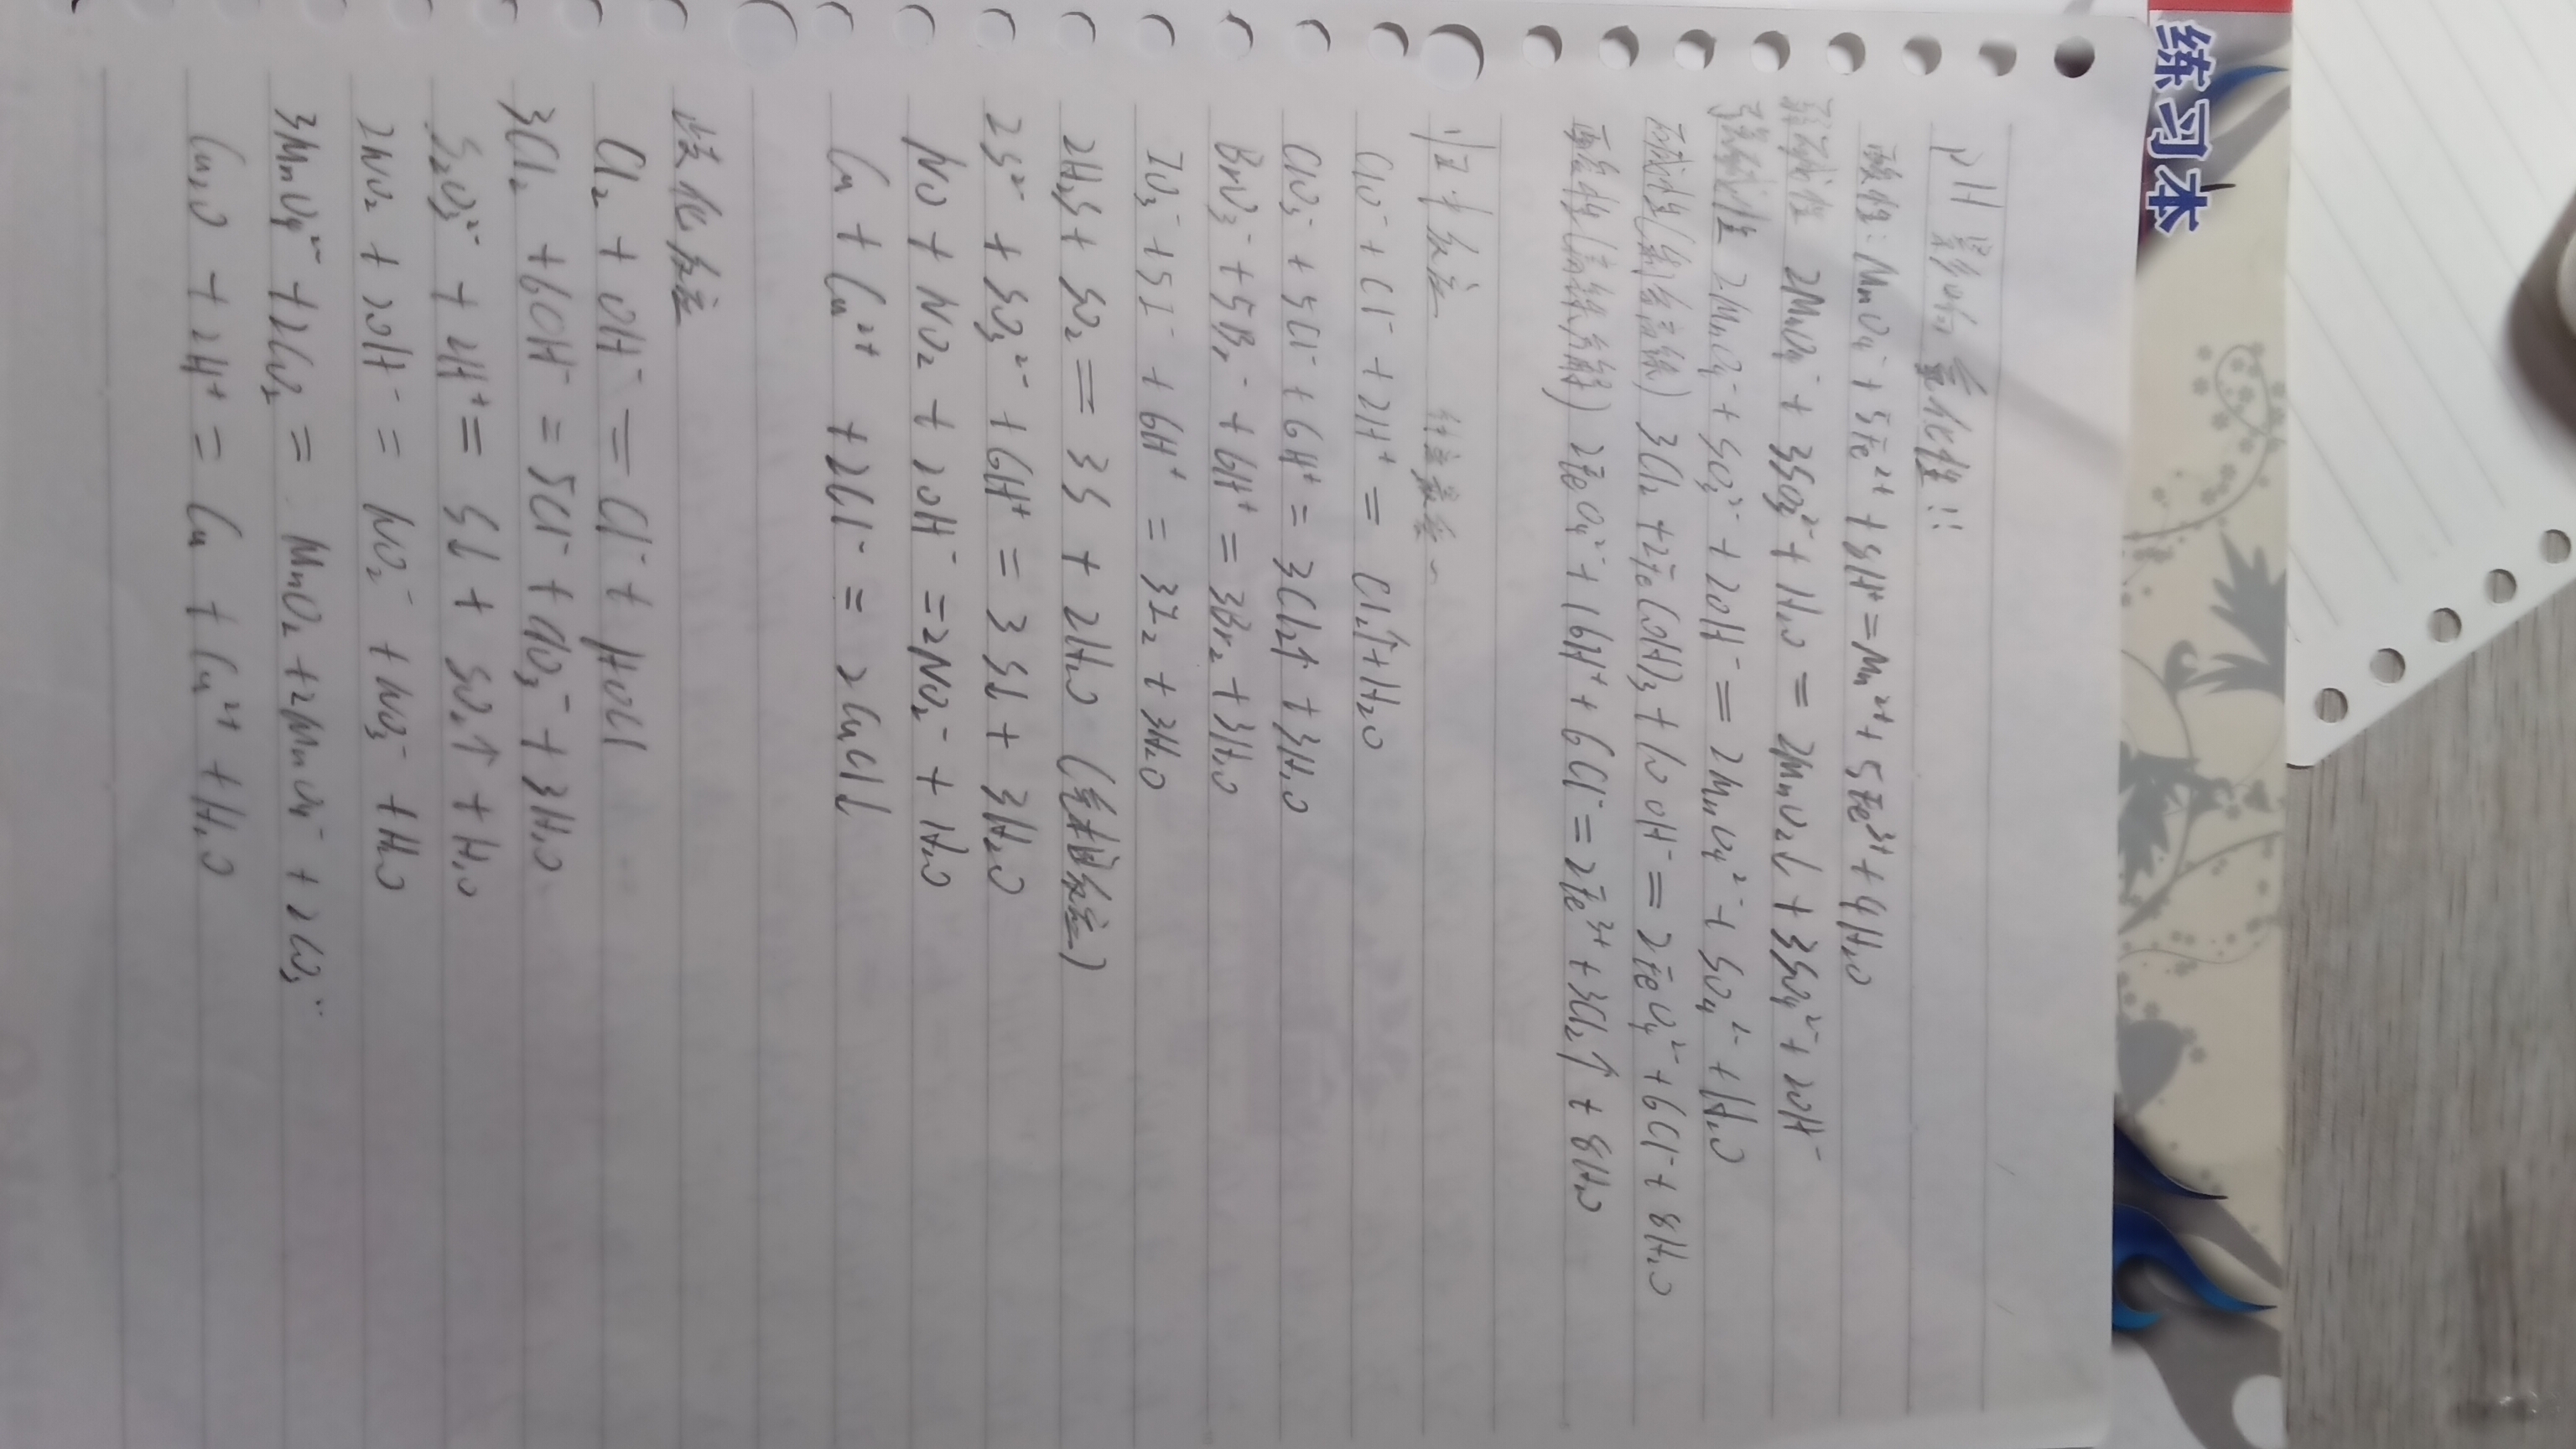 练习本
pH影响氧化性!!
酸性: MnO₄⁻ + 5Fe²⁺ + 8H⁺ = Mn²⁺ + 5Fe³⁺ + 4H₂O
2MnO₄⁻ + 3SO₃²⁻ + H₂O = 2MnO₂↓ + 3SO₄²⁻ + 2OH⁻
强碱性 2MnO₄⁻ + SO₃²⁻ + 2OH⁻ = 2MnO₄²⁻ + SO₄²⁻ + H₂O
3Cl₂ + 2Fe(OH)₃ + 10OH⁻ = 2FeO₄²⁻ + 6Cl⁻ + 8H₂O
2FeO₄²⁻ + 16H⁺ + 6Cl⁻ = 2Fe³⁺ + 3Cl₂↑ + 8H₂O
归中反应
ClO⁻ + Cl⁻ + 2H⁺ = Cl₂↑ + H₂O
ClO₃⁻ + 5Cl⁻ + 6H⁺ = 3Cl₂↑ + 3H₂O
BrO₃⁻ + 5Br⁻ + 6H⁺ = 3Br₂ + 3H₂O
IO₃⁻ + 5I⁻ + 6H⁺ = 3I₂ + 3H₂O
2H₂S + SO₂ = 3S + 2H₂O (气相反应)
2S²⁻ + SO₃²⁻ + 6H⁺ = 3S↓ + 3H₂O
NO + NO₂ + 2OH⁻ = 2NO₂⁻ + H₂O
Cu + Cu²⁺ + 2Cl⁻ = 2CuCl↓
歧化反应
Cl₂ + OH⁻ = Cl⁻ + HOCl
3Cl₂ + 6OH⁻ = 5Cl⁻ + ClO₃⁻ + 3H₂O
S₂O₃²⁻ + 2H⁺ = S↓ + SO₂↑ + H₂O
2NO₂ + 2OH⁻ = NO₂⁻ + NO₃⁻ + H₂O
3MnO₄²⁻ + 2CO₂ = MnO₂ + 2MnO₄⁻ + 2CO₃²⁻
Cu₂O + 2H⁺ = Cu + Cu²⁺ + H₂O